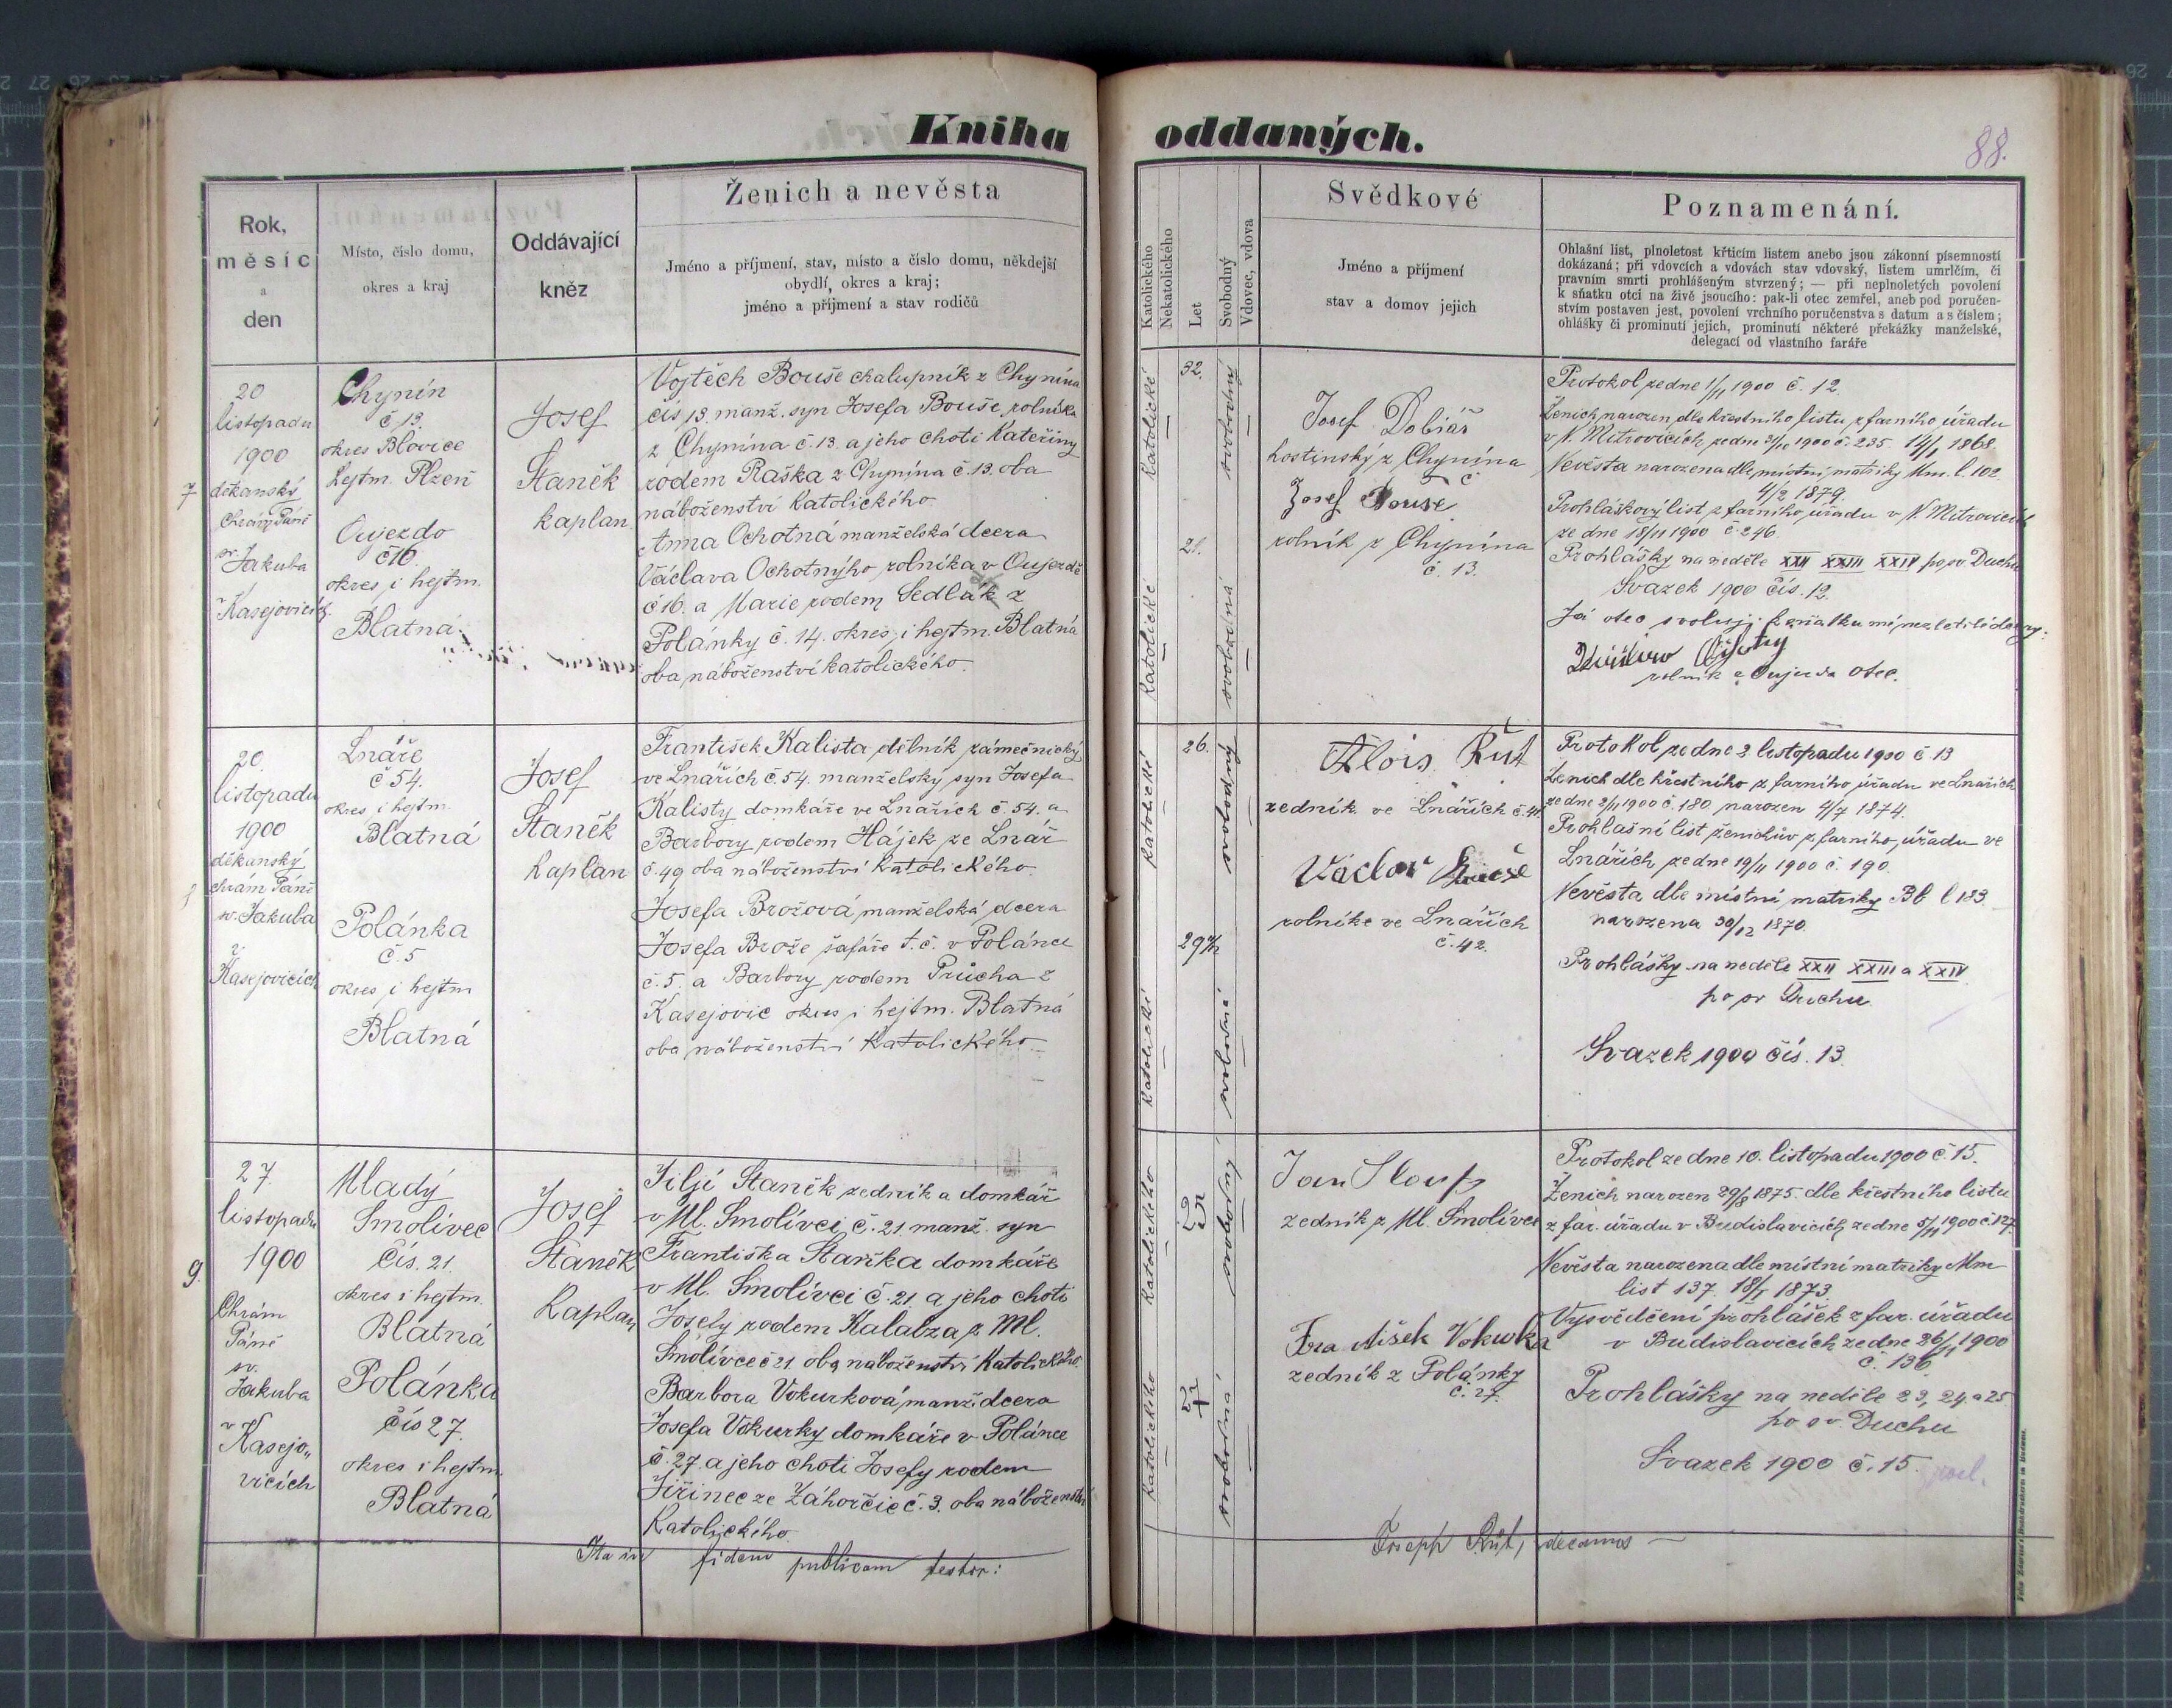 Kniha oddaných.
88.
Rok,
měsíc
a
den
Místo, číslo domu,
okres a kraj
Oddávající
kněz
Ženich a nevěsta
Jméno a příjmení, stav, místo a číslo domu, někdejší
obydlí, okres a kraj;
jméno a příjmení a stav rodičů
Katolického
Nekatolického
Let
Svobodný
Vdovec, vdova
Svědkové
Jméno a příjmení
stav a domov jejich
Poznamenání.
Ohlašní list, plnoletost křticím listem anebo jsou zákonní písemností
dokázaná; při vdovcích a vdovách stav vdovský, listem umrlčím, či
pravním smrti prohlášeným stvrzený; — při neplnoletých povolení
k sňatku otci na živě jsoucího: pak-li otec zemřel, aneb pod poručen-
stvím postaven jest, povolení vrchního poručenstva s datum a s číslem;
ohlášky či prominutí jejich, prominutí některé překážky manželské,
delegací od vlastního faráře
7
20
listopadu
1900
děkanský
Chrám Páně
sv. Jakuba
v Kasejovicích
Chynín
č 13.
okres Blovice
hejtm. Plzeň
Oujezdo
č16.
okres i hejtm.
Blatná
Josef
Staněk
kaplan
Vojtěch Bouše chalupník z Chynína
čís 13. manž. syn Josefa Bouše, rolníka
z Chynína č. 13. a jeho choti Kateřiny
rodem Raška z Chynína č 13. oba
náboženství katolického
Anna Ochotná manželská dcera
Václava Ochotnýho rolníka v Oujezdě
č 16. a Marie rodem Sedlák z
Polánky č. 14. okres i hejtm. Blatná
oba náboženství katolického.
katolické
katolické
32.
21.
svobodný
svobodná
Josef Dobiáš
hostinský z Chynína
č
Josef Bouše
rolník z Chynína
č. 13.
Protokol ze dne 1/11 1900 č. 12.
Ženich narozen dle křestního listu z farního úřadu
v N. Mitrovicích ze dne 31/10 1900 č. 235. 14/1 1868.
Nevěsta narozena dle místní matriky Mm. l. 102.
4/2 1879.
Prohláškový list z farního úřadu v N. Mitrovicích
ze dne 18/11 1900 č. 246.
Prohlášky na neděle XXII XXIII XXIV po sv. Duchu
Svazek 1900 čís. 12.
Já otec svoluji k sňatku mé nezletilé dcery:
rolník z Oujezda otec.
20.
listopadu
1900
děkanský
chrám Páně
sv. Jakuba
v
Kasejovicích
Lnáře
č 54.
okres i hejtm.
Blatná
Polánka
č. 5
okres i hejtm
Blatná
Josef
Staněk
kaplan
František Kalista dělník zámečnický
ve Lnářích č. 54. manželský syn Josefa
Kalisty domkáře ve Lnářích č. 54. a
Barbory rodem Hájek ze Lnář
č. 49 oba náboženství katolického.
Josefa Brožová manželská dcera
Josefa Brože šafáře t. č. v Polánce
č. 5. a Barbory rodem Průcha z
Kasejovic okres i hejtm. Blatná
oba náboženství katolického
katolické
katolické
26.
svobodný
Alois Rut
zedník ve Lnářích č. 41.
Václav
rolník ve Lnářích
č. 42.
Protokol ze dne 2 listopadu 1900 č 13
Ženich dle křestního z farního úřadu ve Lnářích
ze dne 2/11 1900 č. 180, narozen 4/7 1874.
Prohlašní list ženichův z farního úřadu ve
Lnářích ze dne 19/11 1900 č. 190.
Nevěsta dle místní matriky Bb l 183.
narozena 30/12 1870.
Prohlášky na neděle XXII XXIII a XXIV
po sv Duchu.
Svazek 1900 čís. 13.
9.
27.
listopadu
1900
Chrám
Páně
sv.
Jakuba
v
Kasejo„
vicích
Mladý
Smolivec
čís. 21.
okres i hejtm.
Blatná
Polánka
čís 27.
okres i hejtm.
Blatná
Josef
Staněk
Kaplan
Jiljí Staněk zedník a domkář
v Ml. Smolívci č. 21 manž. syn
Františka Staňka domkáře
v Ml. Smolívci č. 21. a jeho choti
Josefy rodem Kalabza z Ml.
Smolívce č 21. oba náboženství Katolického.
Barbora Vokurková, manž. dcera
Josefa Vokurky domkáře v Polánce
č. 27. a jeho choti Josefy rodem
Jiřinec ze Záhorčic č. 3. oba náboženství
Katolického.
Katolického
Katolického
25
27
svobodný
svobodná
Jan Sloup
zedník z Ml. Smolivce
František Vokurka
zedník z Polánky
č. 27.
Protokol ze dne 10. listopadu 1900 č. 15.
Ženich narozen 29/8 1875. dle křestního listu
z far. úřadu v Budislavicích ze dne 5/11 1900 č. 127.
Nevěsta narozena dle místní matriky Mm
list 137. 18/1 1873.
Vysvědčení prohlášek z far. úřadu
v Budislavicích ze dne 26/11 1900
č. 136.
Prohlášky na neděle 23, 24. a 25
po sv. Duchu
Svazek 1900 č. 15.
Ita in fidem publicam testor:
Joseph Rút, decanus